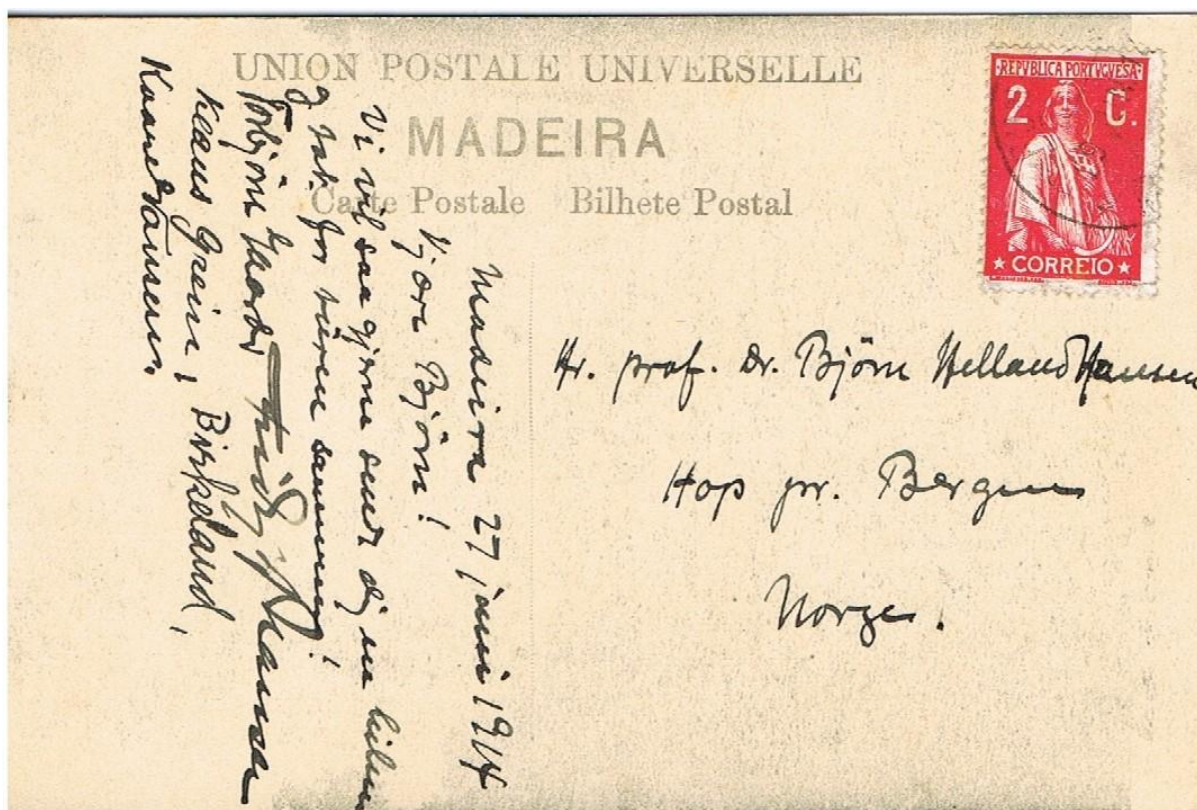 UNION POSTALE UNIVERSELLE
MADEIRA
Carte Postale Bilhete Postal
REPVBLICA PORTVGVESA
2 C.
CORREIO
Madeira 27 juni 1914
Kjære Björn!
Vi vil saa gjerne sende dig en hilsen
og tak for turen sammen!
Torbjörn Gaarder Fridtjof Nansen
Klaus Grein, Birkeland,
Kaare Hansen.
Hr. prof. Dr. Björn Helland Hansen
Hop pr. Bergen
Norge.